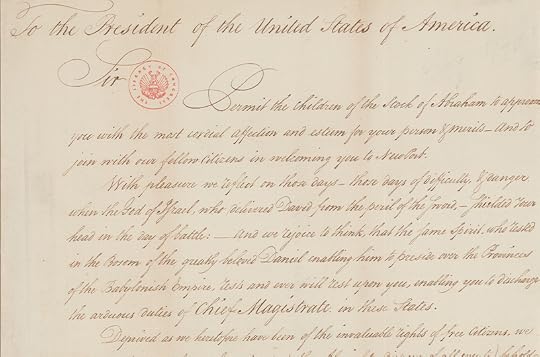 To the President of the United States of America.
Sir
THE LIBRARY OF CONGRESS
Permit the Children of the Stock of Abraham to approach
you with the most cordial affection and esteem for your person & merits — And to
join with our fellow Citizens in welcoming you to NewPort.
With pleasure we reflect on those days — those days of difficulty, & danger
when the God of Israel, who delivered David from the peril of the sword, — shielded your
head in the day of battle: — And we rejoice to think, that the same Spirit, who rested
in the Bosom of the greatly beloved Daniel enabling him to preside over the Provinces
of the Babylonish Empire, rests and ever will rest upon you, enabling you to discharge
the arduous duties of Chief Magistrate in these States.
Deprived as we heretofore have been of the invaluable rights of free Citizens, we